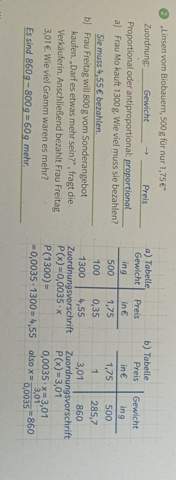 2 „Linsen vom Biobauern, 500 g für nur 1,75 €“
Zuordnung: Gewicht → Preis
Proportional oder antiproportional: proportional
a) Frau Mo kauft 1300 g. Wie viel muss sie bezahlen?
Sie muss 4,55 € bezahlen.
b) Frau Freitag will 800 g vom Sonderangebot
kaufen. „Darf es etwas mehr sein?“, fragt die
Verkäuferin. Anschließend bezahlt Frau Freitag
3,01 €. Wie viel Gramm waren es mehr?
Es sind 860 g – 800 g = 60 g mehr.
a) Tabelle
Gewicht Preis
in g in €
500 1,75
100 0,35
1300 4,55
Zuordnungsvorschrift
P(x) = 0,0035 · x
P(1300) =
= 0,0035 · 1300 = 4,55
b) Tabelle
Preis Gewicht
in € in g
1,75 500
1 285,7
3,01 860
Zuordnungsvorschrift
P(x) = 3,01
0,0035 · x = 3,01
also x = 3,01 / 0,0035 = 860